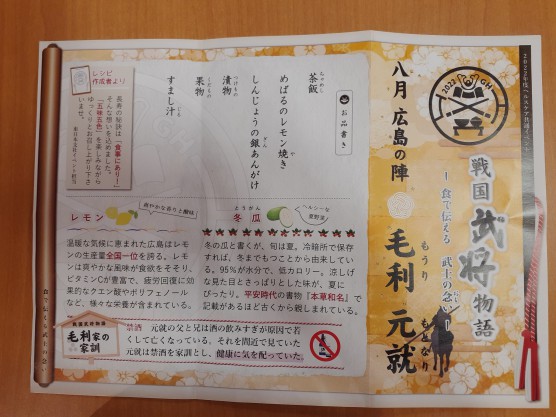 2022年度ヘルスケア共創イベント
2022 GH
戦国武将物語
－食で伝える 武士の念い－
八月 広島の陣
毛利 元就
もうり もとなり
お品書き
茶飯
ちゃめし
めばるのレモン焼き
や
しんじょうの銀あんかけ
ぎん
漬物
つけもの
果物
くだもの
すまし汁
じる
レシピ
作成者より
長寿の秘訣は「食事にあり！」
そんな想いを込めました。
「五味五色」を楽しみながら
ゆっくりとお召し上がり下さ
いませ。
レモン
爽やかな香りと酸味
温暖な気候に恵まれた広島はレモ
ンの生産量全国一位を誇る。レモ
ンは爽やかな風味が食欲をそそり、
ビタミンCが豊富で、疲労回復に効
果的なクエン酸やポリフェノール
など、様々な栄養が含まれている。
とうがん
冬瓜
ヘルシーな
夏野菜
冬の瓜と書くが、旬は夏。冷暗所で保存
すれば、冬までもつことから由来してい
る。95%が水分で、低カロリー。涼しげ
な見た目とさっぱりとした味が、夏に
ぴったり。平安時代の書物『本草和名』で
記載があるほど古くから親しまれている。
戦国武将物語
毛利家の
家訓
禁酒 元就の父と兄は酒の飲みすぎが原因で若
くして亡くなっている。それを間近で見ていた
元就は禁酒を家訓とし、健康に気を配っていた。
食で伝える武士の念い